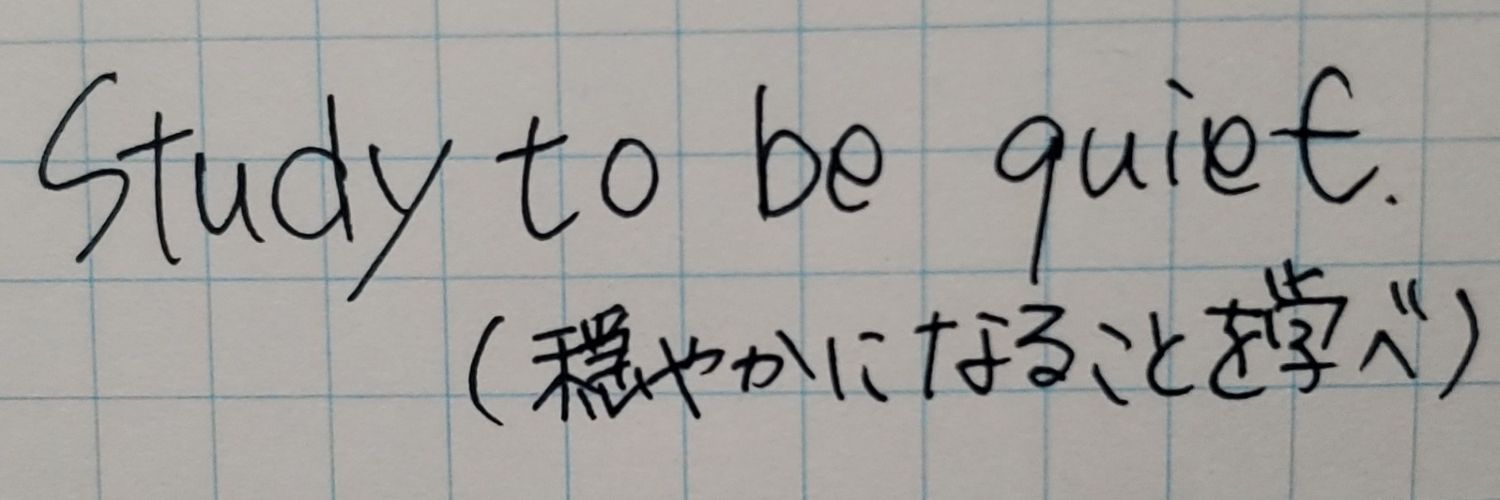 Study to be quiet.
(穏やかになることを学べ)